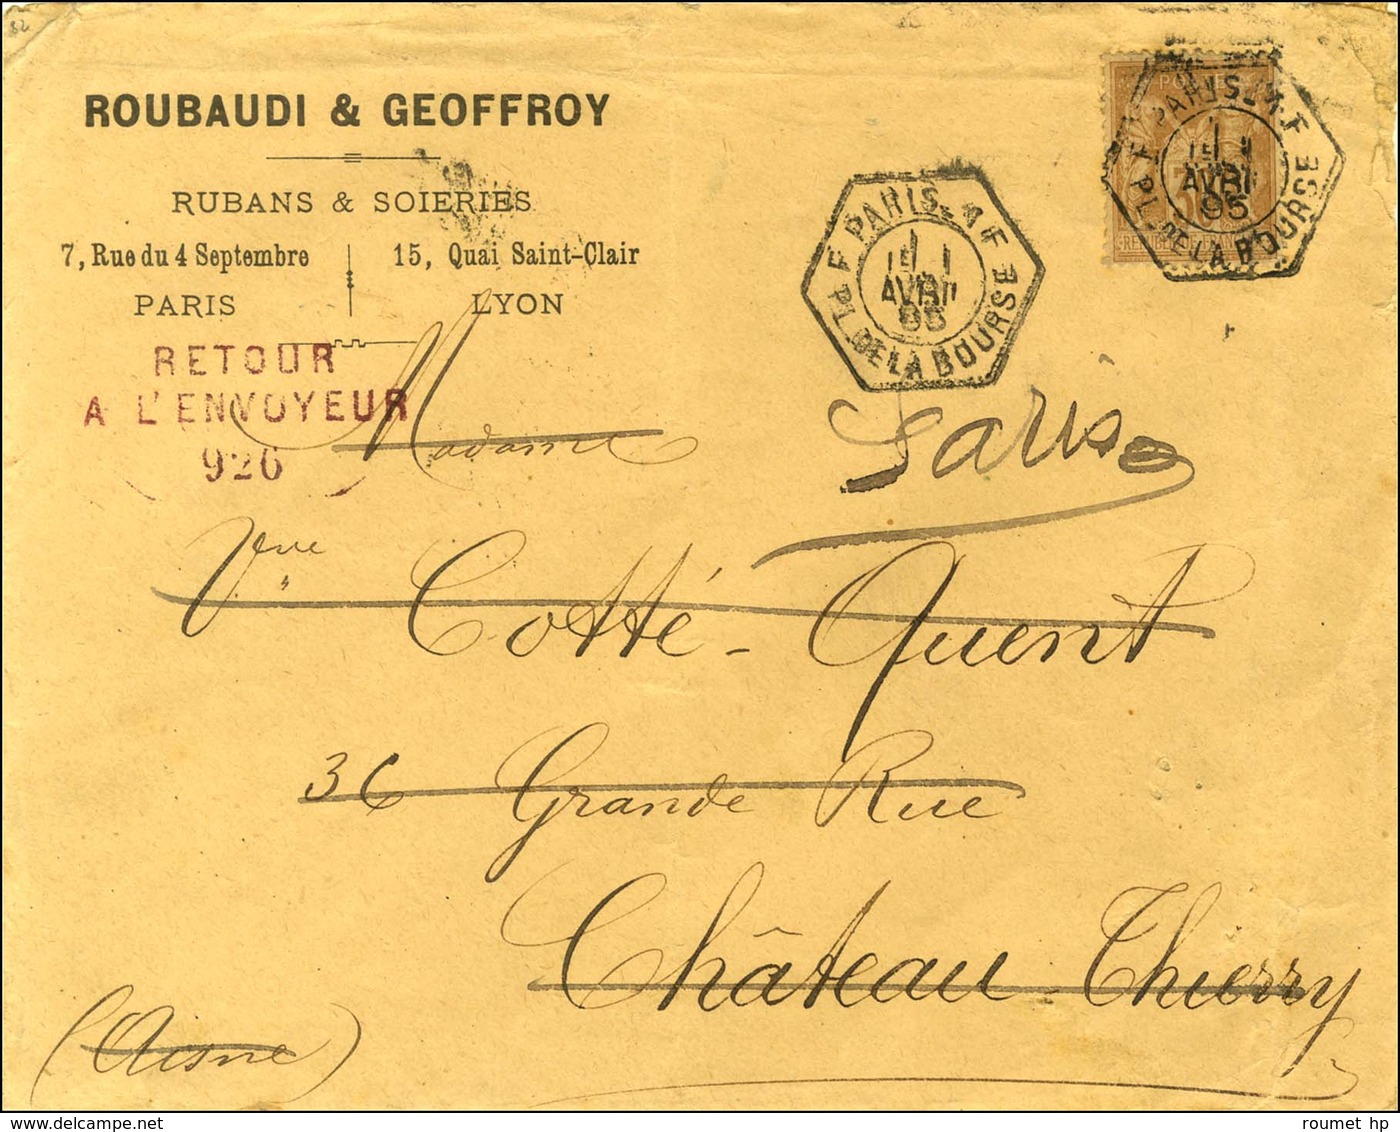 82
ROUBAUDI & GEOFFROY
RUBANS & SOIERIES
7, Rue du 4 Septembre
PARIS
15, Quai Saint-Clair
LYON
RETOUR
A L'ENVOYEUR
926
PARIS
PL. DE LA BOURSE
AVRIL
95
PARIS
PL. DE LA BOURSE
AVRIL
95
Paris
Madame
Vve Cotté-Quent
36 Grande Rue
Château-Thierry
(Aisne)
roumet hp